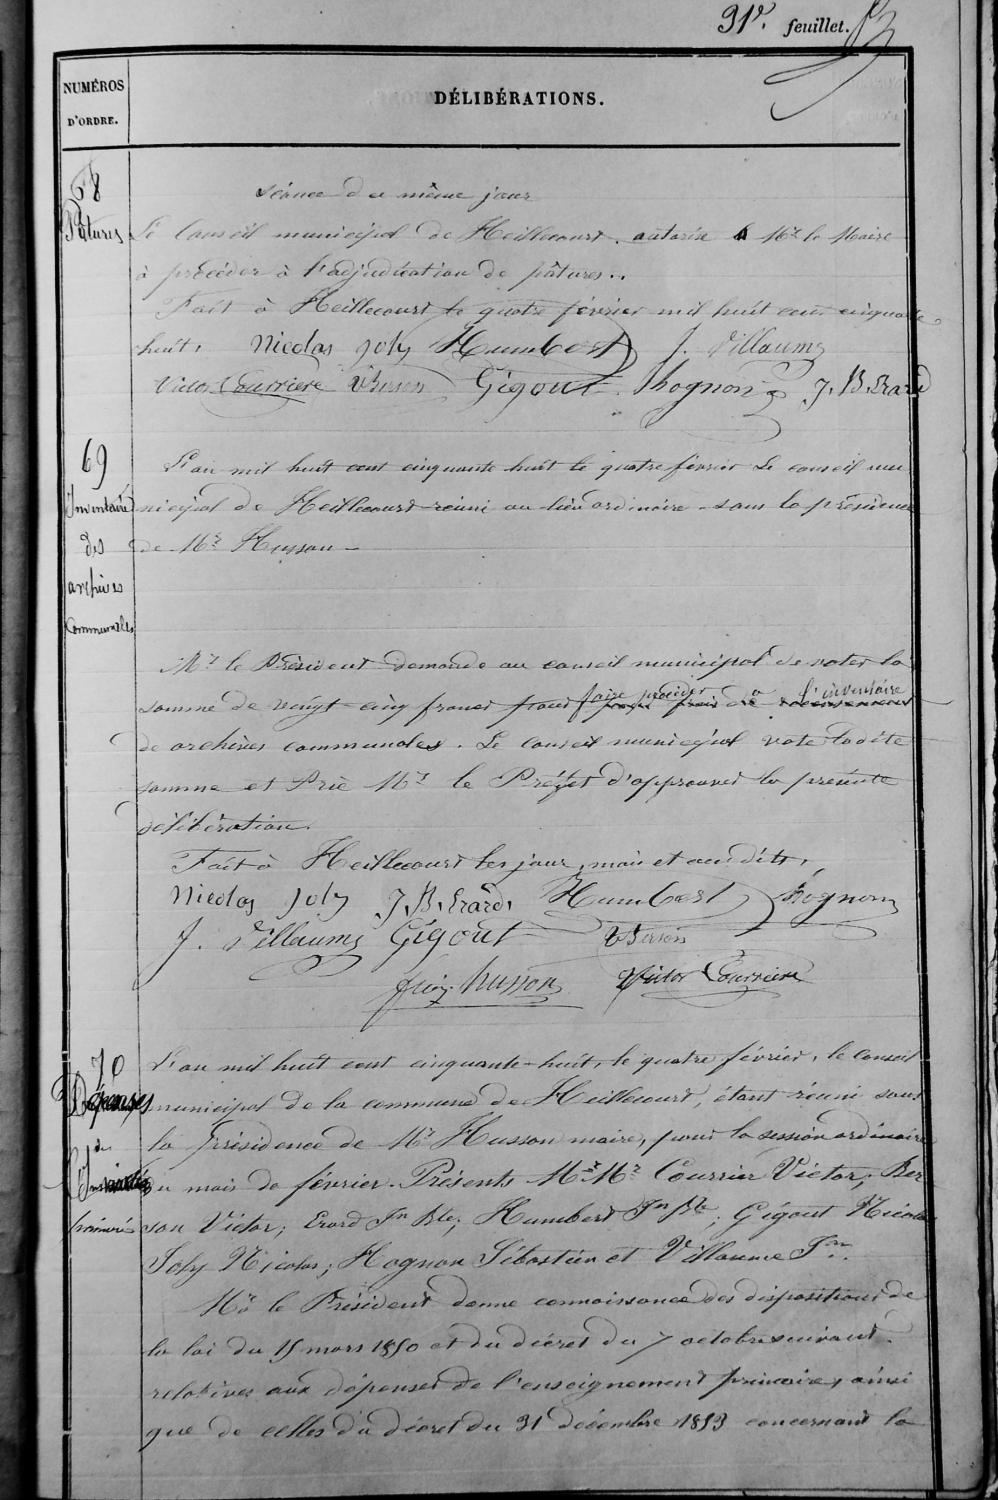 31e. feuillet.
NUMÉROS
D'ORDRE.
DÉLIBÉRATIONS.
68
Pâtures
Séance du même jour
Le Conseil municipal de Heillecourt. autorise Mr le Maire
à procéder à l'adjudication de pâtures..
Fait à Heillecourt le quatre février mil huit cent cinquante
huit. Nicolas Joly Humbert J. Villaume
Victor Courrière VBerson Gigout hognon J.B.Erard
69
Inventaire
des
archives
Communales
L'an mil huit cent cinquante huit le quatre février Le conseil mu
nicipal de Heillecourt réuni au lieu ordinaire sous la présidence
de Mr Husson
Mr le Président demande au conseil municipal de voter la
somme de vingt-cinq francs pour faire procéder à l'inventaire
de archives communales. Le Conseil municipal vote ladite
somme et Prie Mr le Préfet d'approuver la présente
délibération.
Fait à Heillecourt les jour, mois et an dits.
Nicolas Joly J.B.Erard. Humbert hognon
J. Villaume Gigout VBerson
husson Victor Courrière
70
Dépenses
de
primaires
L'an mil huit cent cinquante-huit, le quatre février, le Conseil
municipal de la commune de Heillecourt, étant réuni sous
la présidence de Mr Husson maire, pour la session ordinaire
du mois de février. Présents Mr Mr Courrier Victor; Ber
son Victor; Erard Jn Bte; Humbert Jn Bte; Gigout Nicolas
Joly Nicolas; Hognon Sébastien et Villaume Jn.
Mr le Président donne connaissance des dispositions de
la loi du 15 mars 1850 et du décret du 7 octobre suivant.
relatives aux dépenses de l'enseignement primaire, ainsi
que de celles du décret du 31 décembre 1853 concernant la